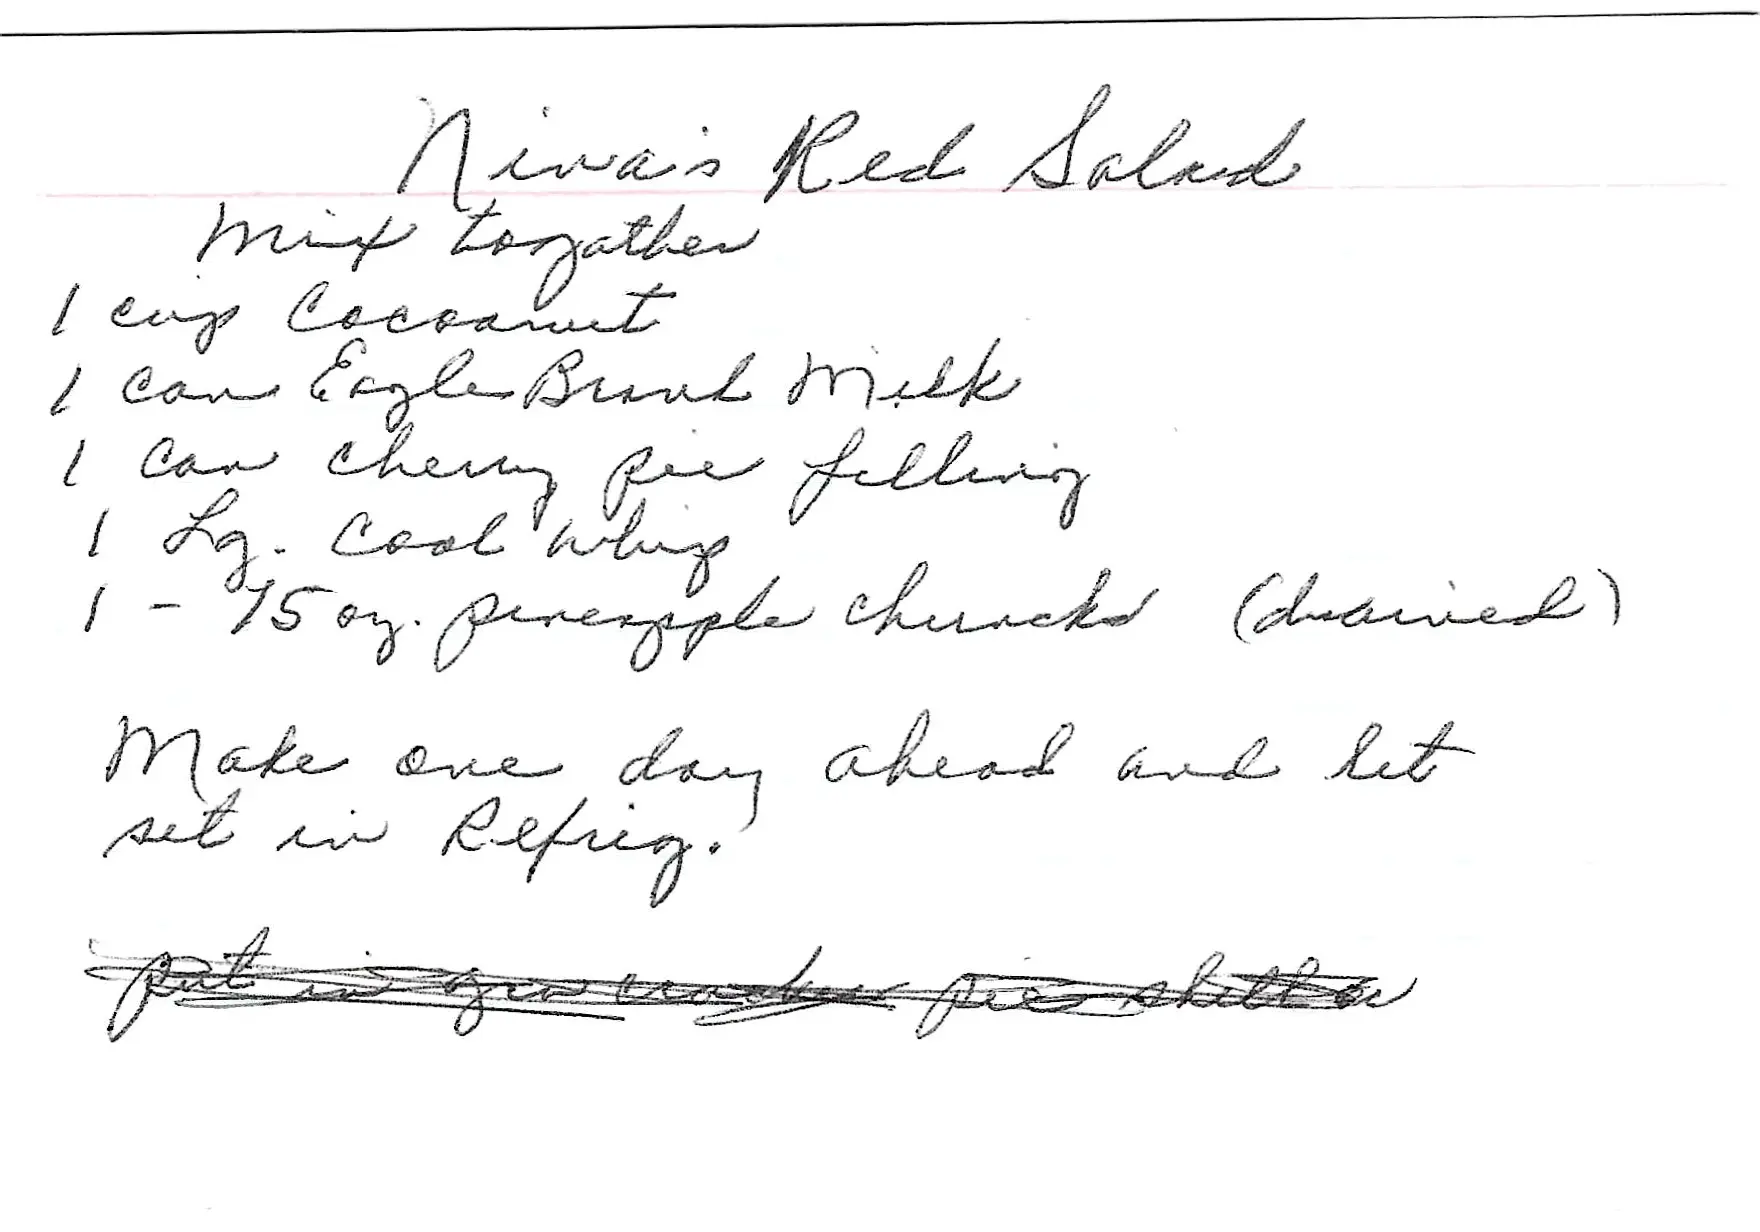 Nina's Red Salad
Mix togather
1 cup Cocoanut
1 can Eagle Brand Milk
1 can cherry pie filling
1 Lg. Cool whip
1 - 15 oz. pineapple chuncks (drained)
Make one day ahead and let
set in Refrig.
put in gra cracker pie shells